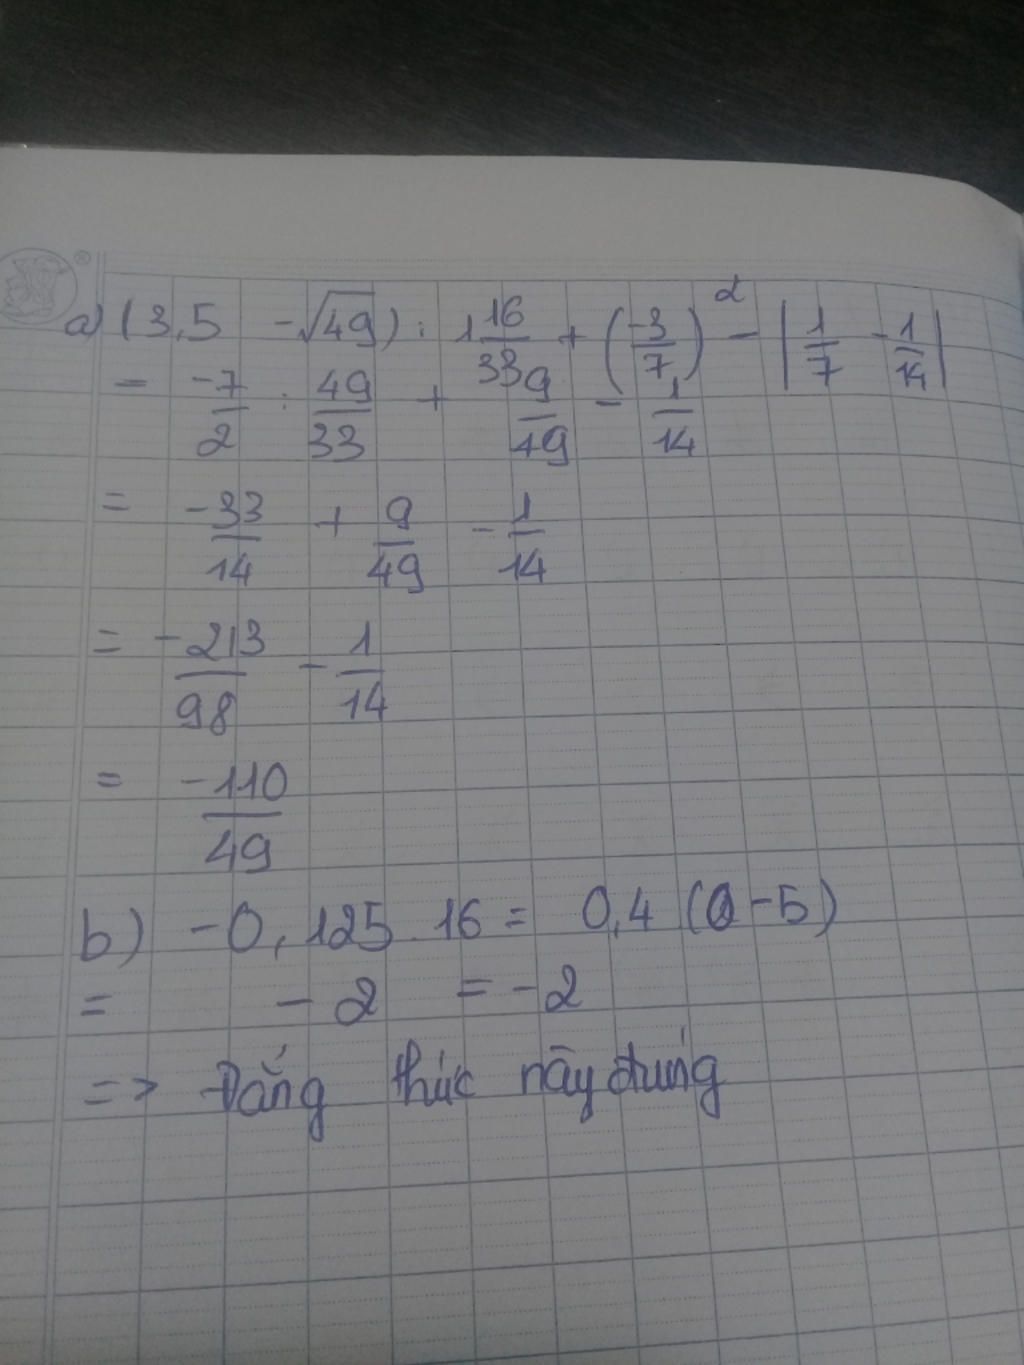 a) (3,5 - √49) : 1 16/33 + (-3/7)² - |1/7 - 1/14|
= -7/2 : 49/33 + 9/49 - 1/14
= -33/14 + 9/49 - 1/14
= -213/98 - 1/14
= -110/49
b) -0,125 . 16 = 0,4 (0-5)
= - 2 = -2
=> Đẳng thức này đúng